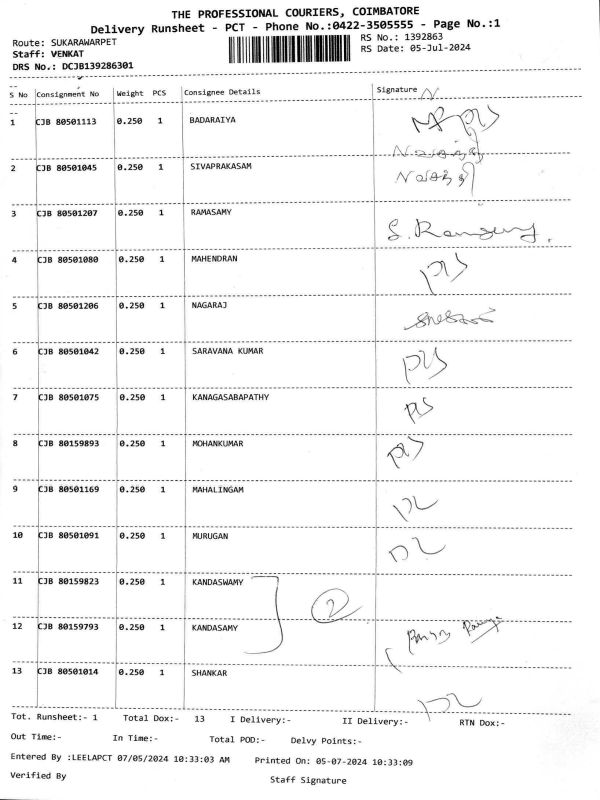 THE PROFESSIONAL COURIERS, COIMBATORE
Delivery Runsheet - PCT - Phone No.:0422-3505555 - Page No.:1
Route: SUKARAWARPET RS No.: 1392863
Staff: VENKAT RS Date: 05-Jul-2024
DRS No.: DCJB139286301
S No Consignment No Weight PCS Consignee Details Signature
1 CJB 80501113 0.250 1 BADARAIYA
2 CJB 80501045 0.250 1 SIVAPRAKASAM
3 CJB 80501207 0.250 1 RAMASAMY
4 CJB 80501080 0.250 1 MAHENDRAN
5 CJB 80501206 0.250 1 NAGARAJ
6 CJB 80501042 0.250 1 SARAVANA KUMAR
7 CJB 80501075 0.250 1 KANAGASABAPATHY
8 CJB 80159893 0.250 1 MOHANKUMAR
9 CJB 80501169 0.250 1 MAHALINGAM
10 CJB 80501091 0.250 1 MURUGAN
11 CJB 80159823 0.250 1 KANDASWAMY
2
12 CJB 80159793 0.250 1 KANDASAMY
13 CJB 80501014 0.250 1 SHANKAR
Tot. Runsheet:- 1 Total Dox:- 13 I Delivery:- II Delivery:- RTN Dox:-
Out Time:- In Time:- Total POD:- Delvy Points:-
Entered By :LEELAPCT 07/05/2024 10:33:03 AM Printed On: 05-07-2024 10:33:09
Verified By Staff Signature